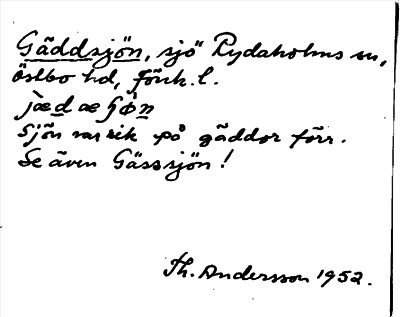 Gäddsjön, sjö Rydaholms sn,
Östbo hd, Jönk. l.
jæ̀dæʃø̀n
Sjön var rik på gäddor förr.
Se även Gässjön!
Th. Andersson 1952.